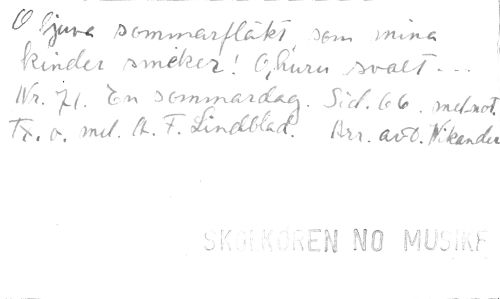 O ljuva sommarfläkt, som mina
kinder smeker! O, huru svalt...
Nr. 71. En sommardag. Sid. 66. mel. not.
Tx. o. mel. A. F. Lindblad. Arr. av O. Nikander
SKOLKÖREN NO MUSIKE